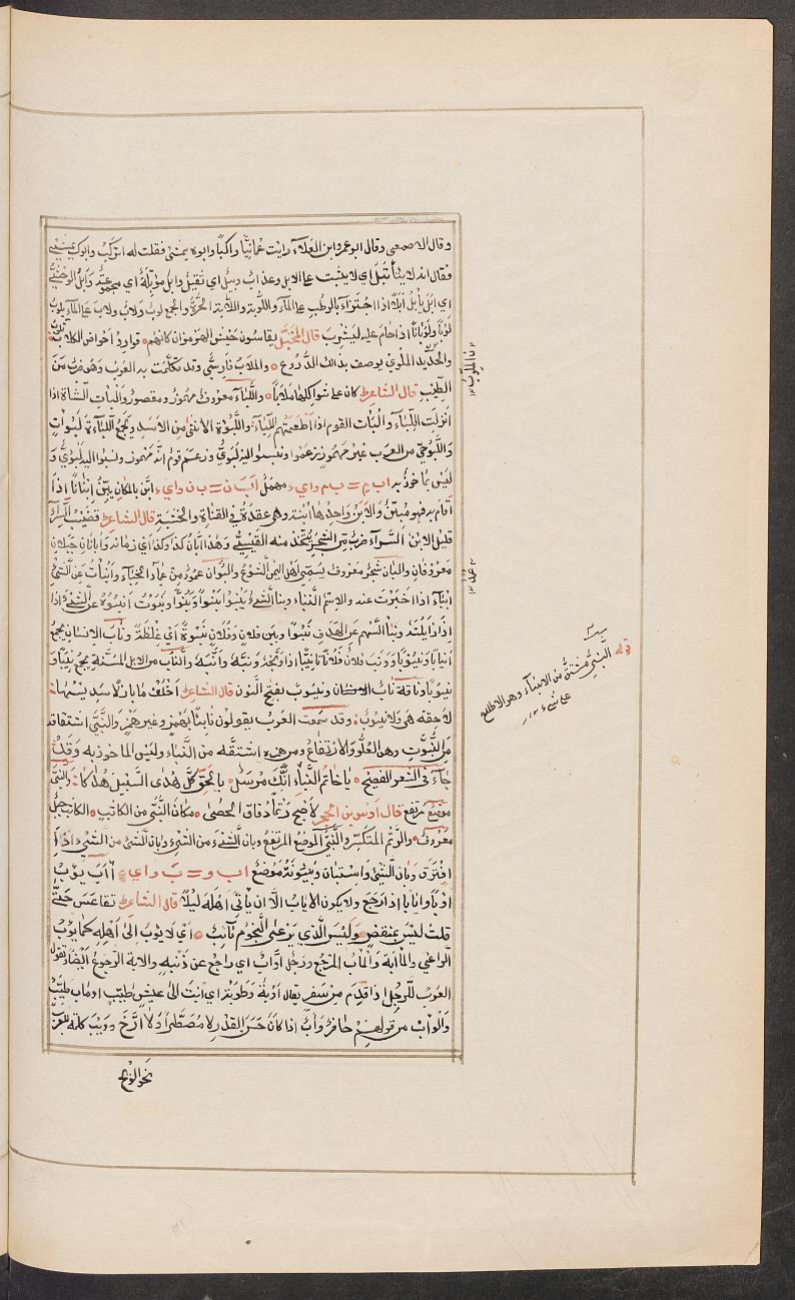 وقال الاصمعي وقال ابو عمرو ابن العلاء رايت عمانيّا راكبا وابوه يمشى فقلت له اتركب وابوك يمشي
فقال انه لا يتأبّل أي لا يثبت على الابل وعذاب وبيل اي ثقيل وابل مؤبّلة اي مجموعة وأبل الوحشيّ
اي ابل يأبل أبلا اذا اجتزأ بالرطب على الماء واللوبة واللابة الحرّة والجمع لوب ولاب ولاب على الماء يلوب
لوبا ولوبانا اذا حام عليه ليشرب قال المخبّل يقاسون جيش الهرمزان كانهم قوارد احواض الكلاب تلوب
والحديد الملوي يوصف بذلك الدروع والملاب فارسيّ وقد تكلّمت به العرب وهو ضرب من
الطيب قال الشاعر كان على شواكلها ملابا واللباء معروف مهموز ومقصور والبات الشاة اذا
انزلت اللباء والبات القوم اذا اطعمتهم اللباء واللبؤة الانثى من الاسد ويجمع اللباءة لبوات
واللبوحيّ من العرب غير مهموز زعموا ونسبوا اليه لبويّ وزعم قوم انّه مهموز ونسبوا اليه لبؤيّ و
ليس بمأخوذ به اب م = ب م واي مهمل اب ن = ب ن واي ابنّ بالمكان يبنّ ابنانا اذا
اقام به فهو مبنّ والابن واحدها ابنة وهي عقدة في القناة والخشبة قال الشاعر قضيب سراء
قليل الابن السراء ضرب من الشجر يتّخذ منه القسيّ وهذا ابّان كذا وكذا اي زمانه وأبانان جبلان
معروفان والبان شجر معروف يسمّى اهل اليمن الشوع والبوان عمود من عماد الخباء وانبأت عن الشيء
انباء اذا اخبرت عنه والاسم النباء وبنا الشيء ينبوا نبوا ونبوّا ونبوت انبوه عن الشيء اذا
اذا زايلته ونبا السهم عن الهدف نبوا وبين فلان وفلان نبوة اي غلظة وناب الانسان يجمع
انيابا ونيوبا ونيّب فلان فلانا نابا اذا ونيّبه وانّبه والناب من الابل المسنّة يجمع نيابا و
نيوبا وناقة ناب ونيوب بفتح النون قال الشاعر اخلف ما بازلا سديسها
لا حقّه هي ولا نيوب وقد سمعت العرب يقولون نابيئا بهمز وغير همز والنبّي اشتقاقه
من النبوّت وهي العلو والارتفاع ومن همزه اشتقّه من النباء وليس الماخوذ به وقد
جاء فى الشعر الفصيح يا خاتم النباء انّك مرسل بالحق كلّ هدى السبيل هداكا والنبيّ
موضع مرتفع قال اوس بن الحجر لاصبح رتما دقاق الحصى مكان النبّي من الكاثب الكاثب جبل
معروف والرتم المتكسّر والنبيّ الموضع المرتفع وبان الشيء من الشيء وابان الشئ من الشيء اذا
افترق وبان الشئ واستبان وبينونة موضع اب و = ب واي اب يؤب
اوبا وايابا اذا رجع ولا يكون الاياب الّا ان يأتي اهله ليلا قال الشاعر تقاعس حتّى
قلت ليس بمنقض وليس الّذي يرعى النجوم بآئب اي لا يوب الى اهله كما يؤب
الراعي والمآبة والمآب المرجع ورجل اوّاب اي راجع عن ذنبه والابة الرجوع ايضا وتقول
العرب للرّجل اذا قدم من سفر يقال اوبة وطوبة اي ابت الى عيش طيّب او ماب طيّب
والوأب من قولهم حافر وأب اذا كان حسن القدر لا مصطرّا ولا ارحّ وويب كلمة للعرب
نحو الويح
قوله
النبيّ مشتق من الانباء وهو الاطلاع
على شيء ١٢